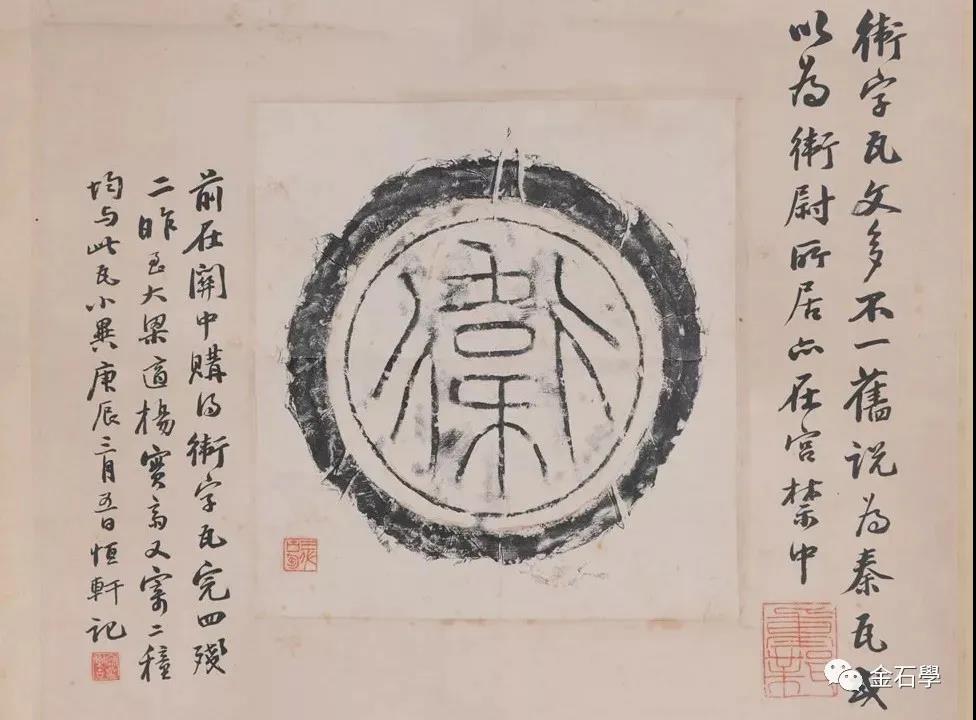 衛字瓦文多不一舊説為秦瓦或
以為衛尉所居亦在宫禁中
衛
前在關中購得衛字瓦完四殘
二昨至大梁適楊寶高又寄二種
均与此瓦小異庚辰三月五日恒軒記
金石學